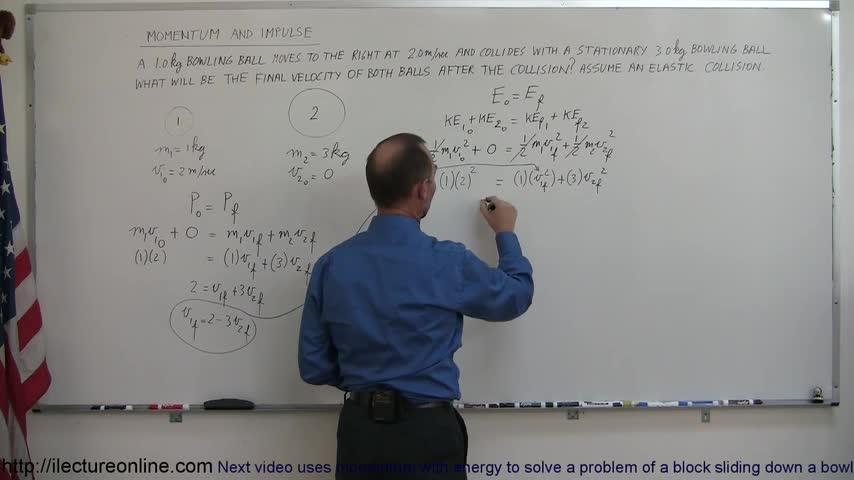 MOMENTUM AND IMPULSE
A 1.0 kg BOWLING BALL MOVES TO THE RIGHT AT 2.0 m/sec AND COLLIDES WITH A STATIONARY 3.0 kg BOWLING BALL
WHAT WILL BE THE FINAL VELOCITY OF BOTH BALLS AFTER THE COLLISION? ASSUME AN ELASTIC COLLISION.
1
m₁ = 1 kg
v₁₀ = 2 m/sec
2
m₂ = 3 kg
v₂₀ = 0
P₀ = P_f
m₁v₁₀ + 0 = m₁v₁f + m₂v₂f
(1)(2) = (1)v₁f + (3)v₂f
2 = v₁f + 3v₂f
v₁f = 2 - 3v₂f
E₀ = E_f
KE₁₀ + KE₂₀ = KE_f1 + KE_f2
1/2 m₁v₁₀² + 0 = 1/2 m₁v₁f² + 1/2 m₂v₂f²
(1)(2)² = (1)(v₁f²) + (3)v₂f²
http://ilectureonline.com Next video uses momentum with energy to solve a problem of a block sliding down a bowl